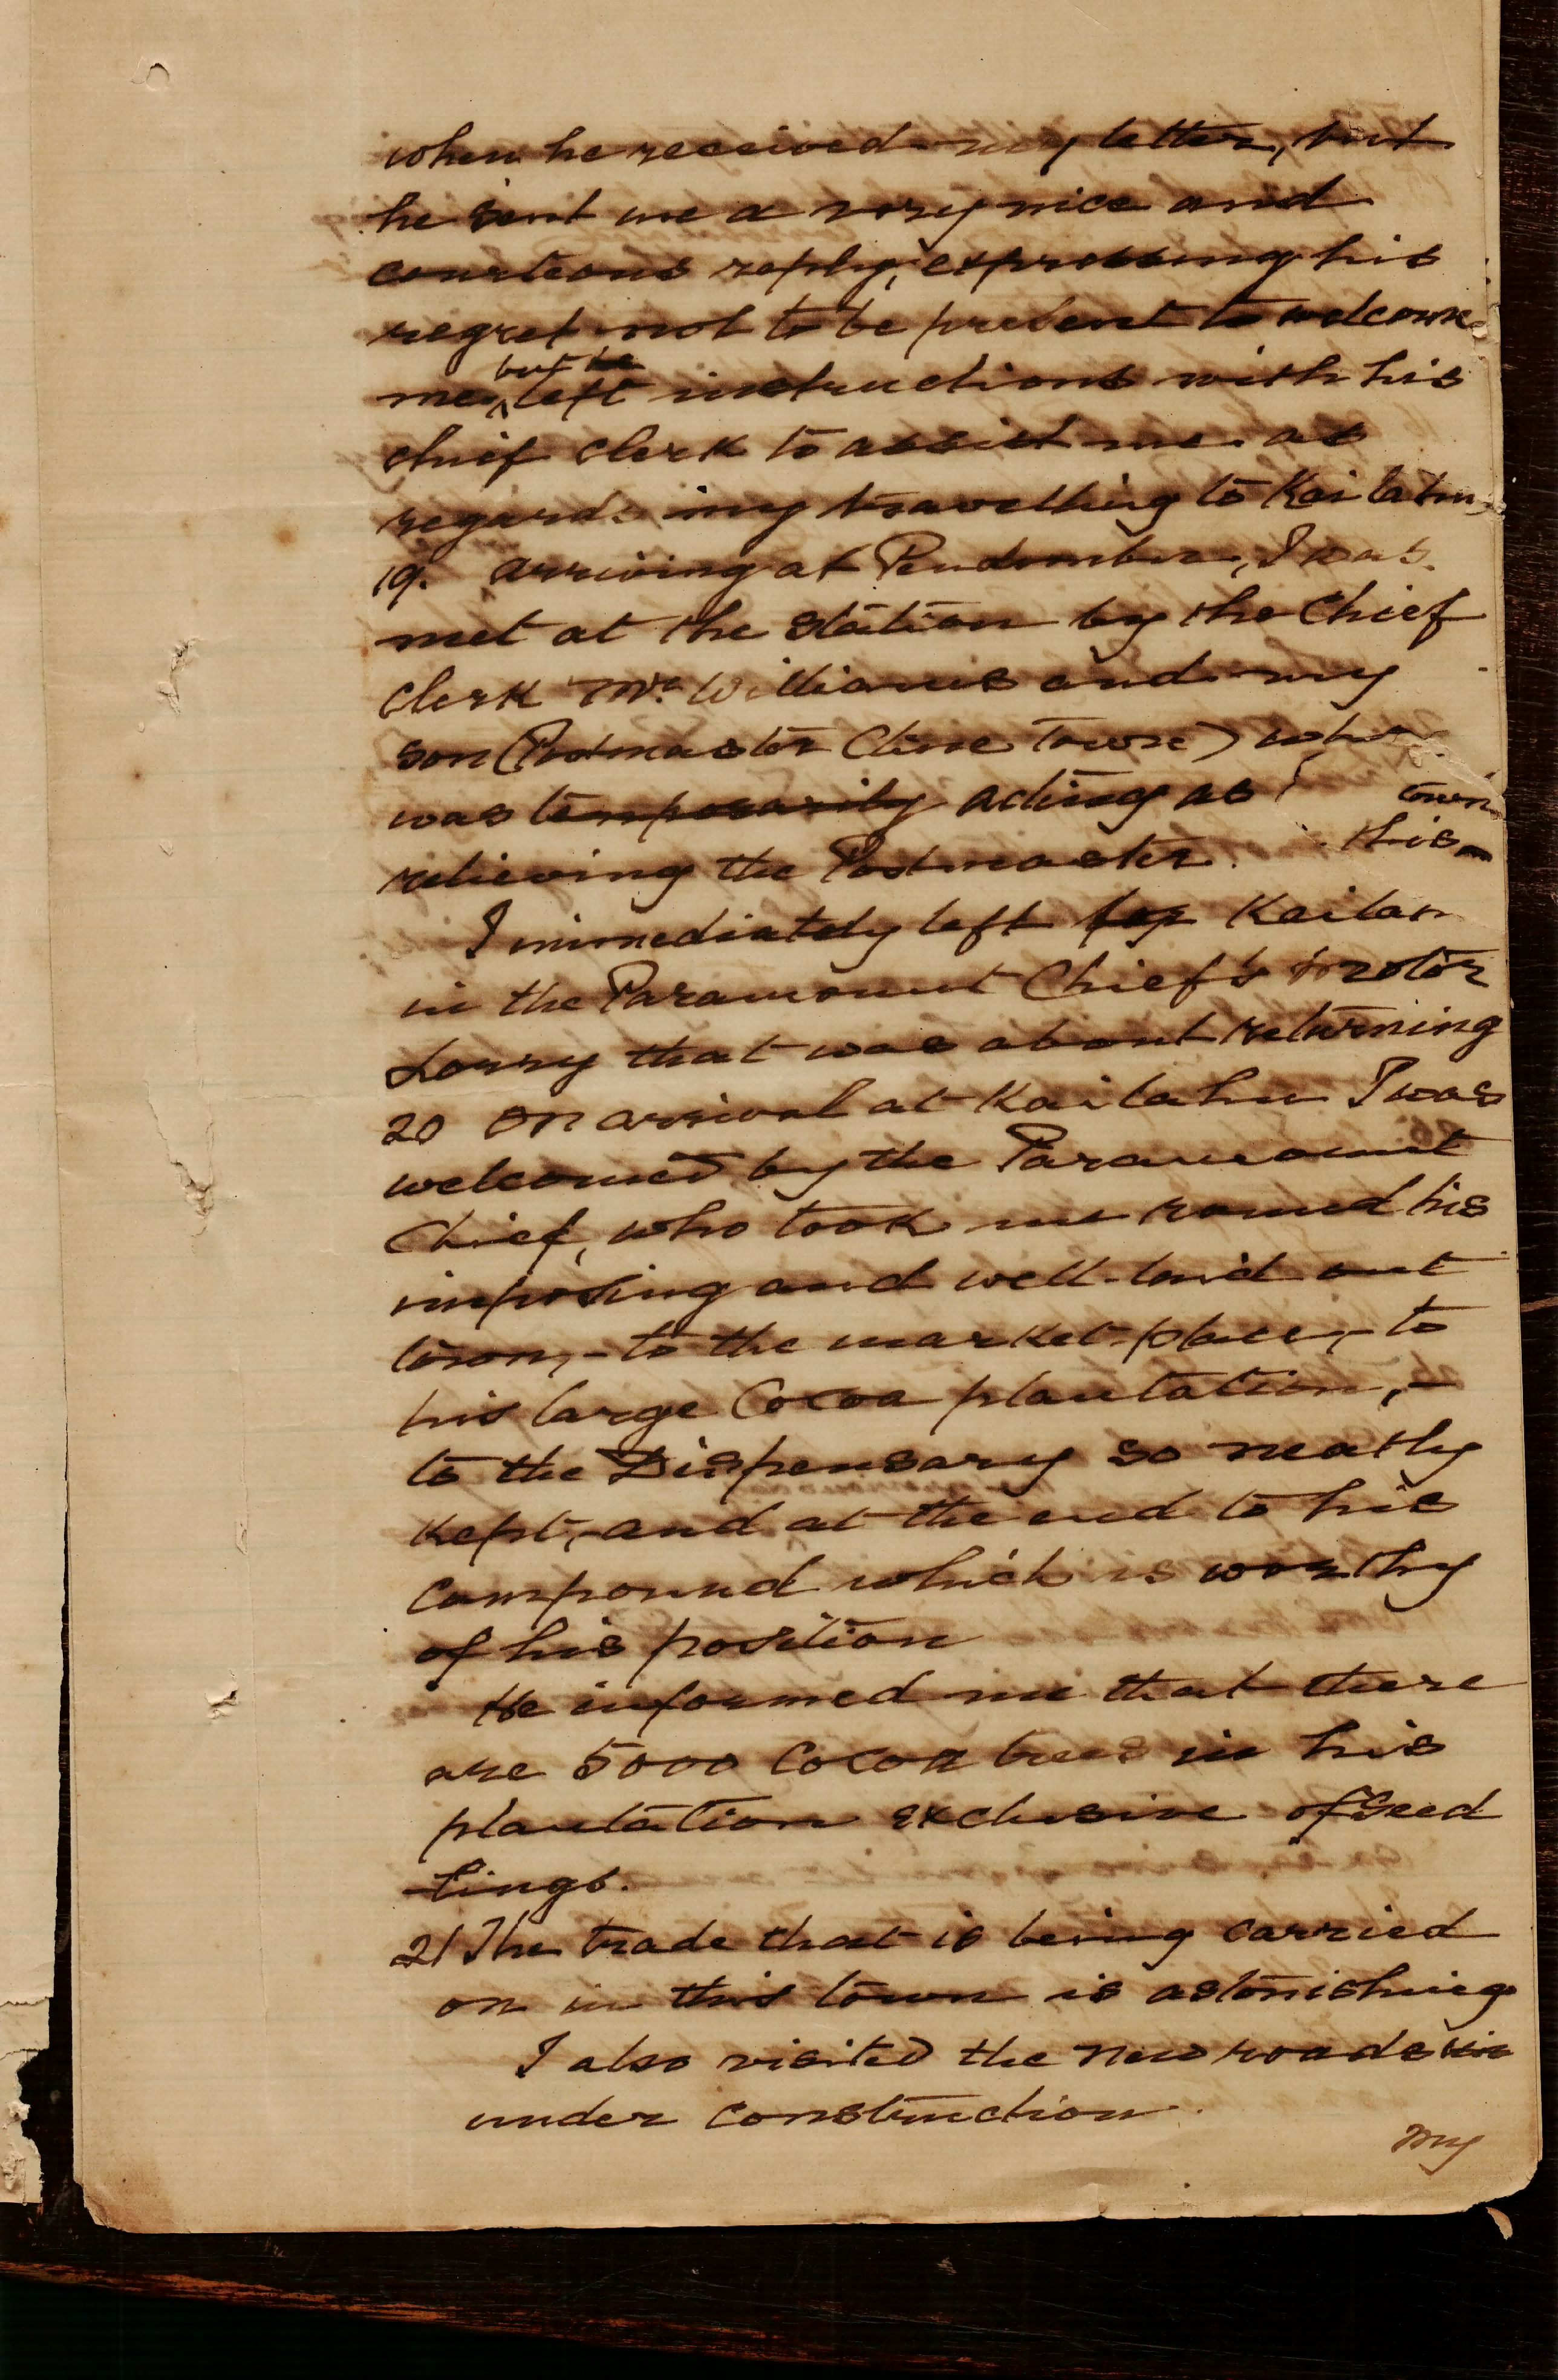 when he received my letter, but
he sent me a very nice and
courteous reply, expressing his
regret not to be present to welcome
but he
me, left instructions with his
chief clerk to assist me as
regards my travelling to Kailahu
19. Arriving at Pendembu, I was
met at the station by the Chief
Clerk Mr. Williams and my
son (Postmaster Cline Town) who
was temporarily acting as
town
relieving the Postmaster. this
I immediately left for Kailahu
in the Paramount Chief's motor
Lorry that was about returning
20 On arrival at Kailahu I was
welcomed by the Paramount
Chief, who took me round his
imposing and well-laid out
town,- to the market-place,- to
his large Cocoa plantation,-
to the Dispensary so neatly
kept,- and at the end to his
compound which is worthy
of his position
He informed me that there
are 5000 Cocoa trees in his
plantation exclusive of Seed
-lings.
21 The trade that is being carried
on in this town is astonishing
I also visited the new roads
under construction.
My